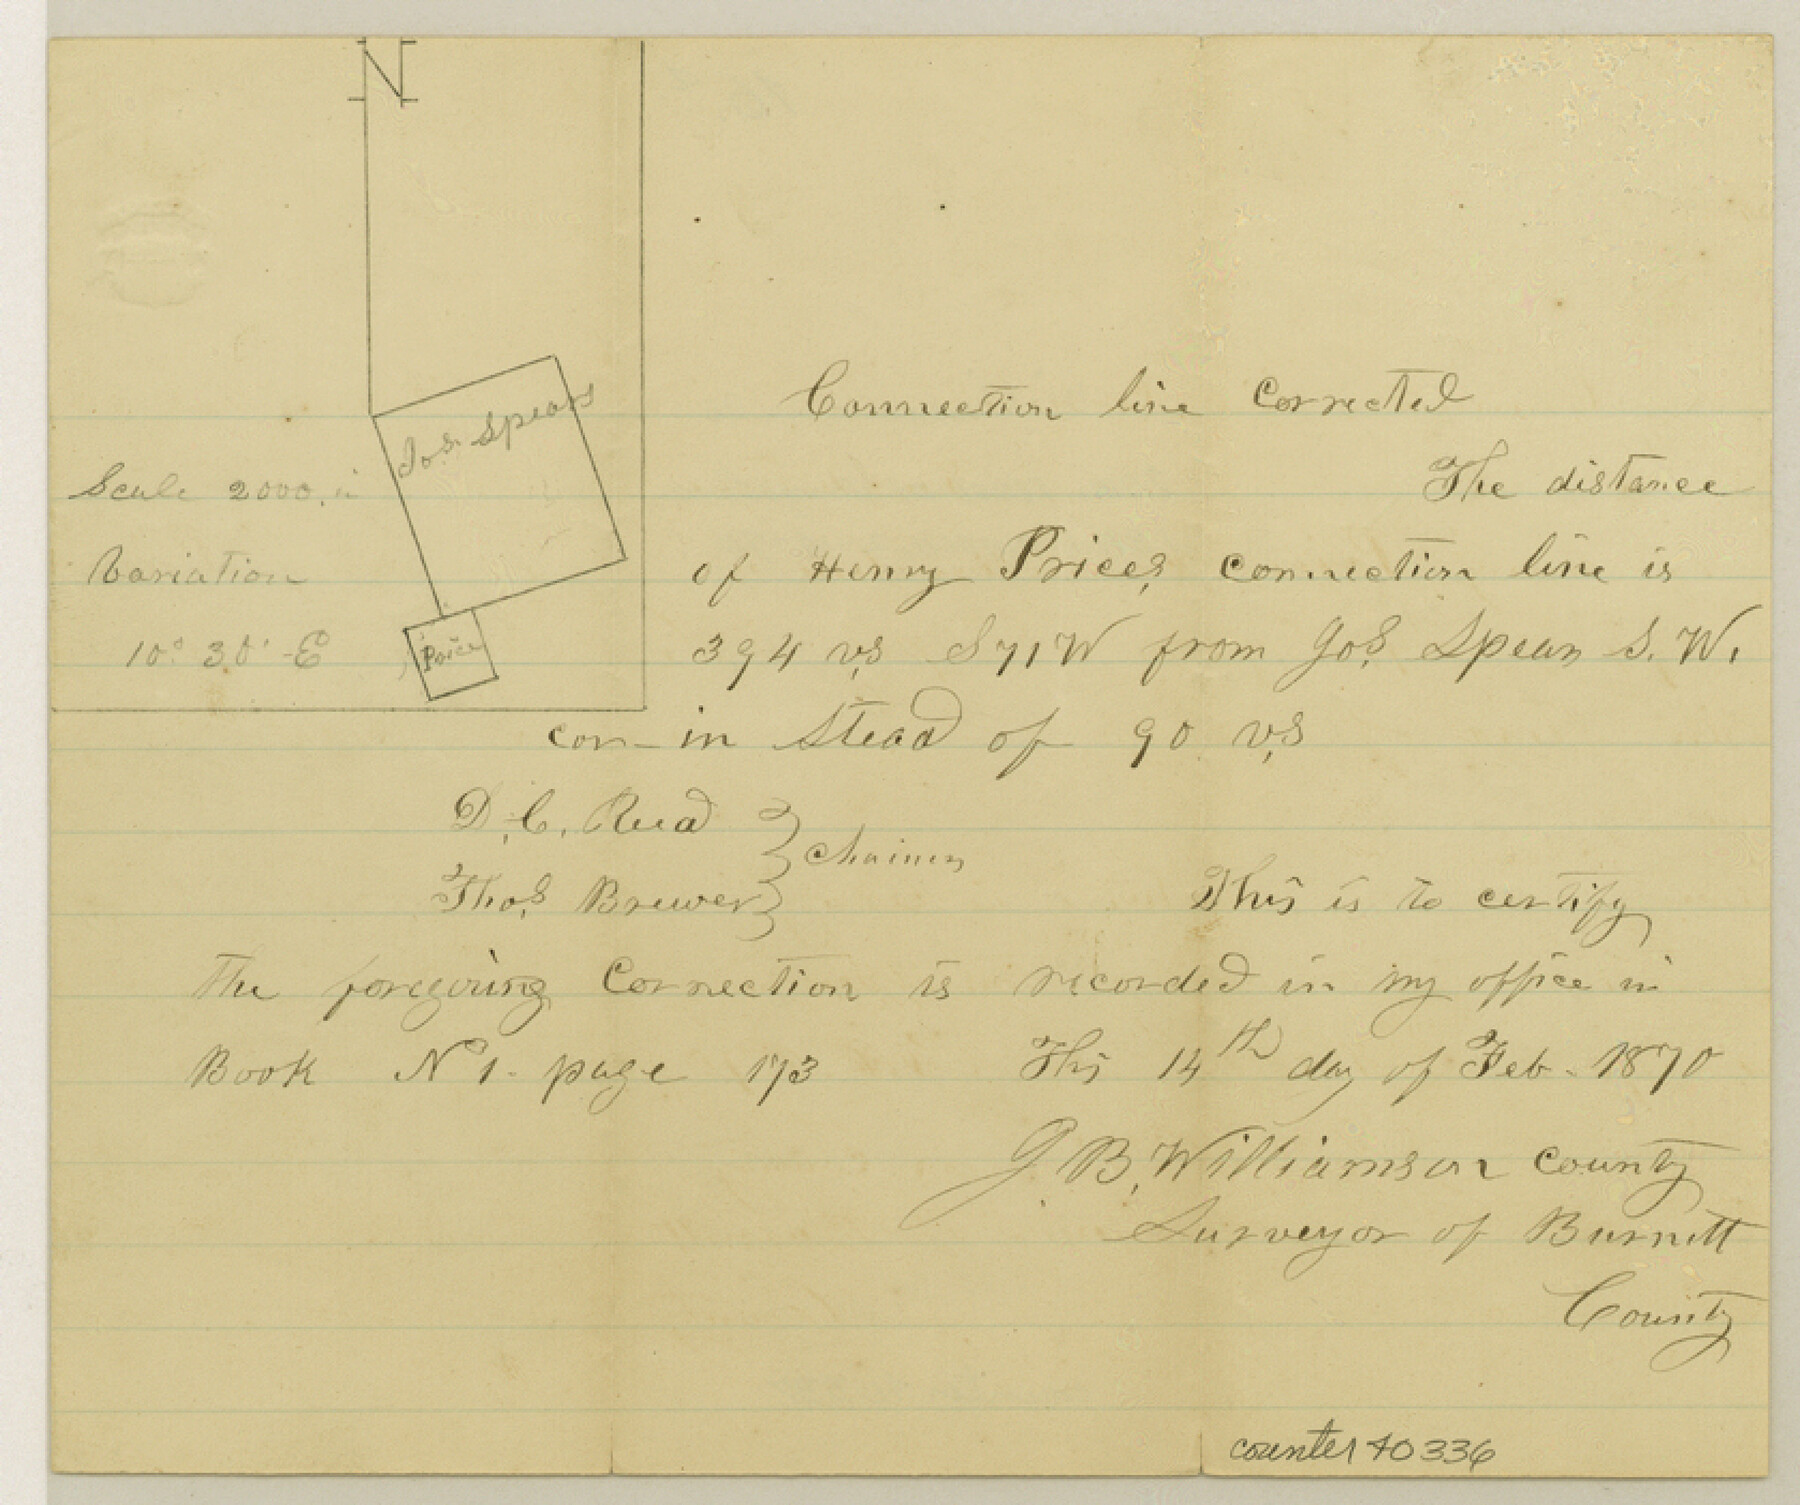 N
Jos. Spears
Scale 2000. in
Variation
10° 30' - E
Price
Connection line Corrected
The distance
of Henry Prices connection line is
394 vs S 71 W from Jos Spears S. W.
cor - in Stead of 90 vs
D. C. Reed
Thos Brewer } Chainers
This is to certify
The foregoing Correction is recorded in my office in
Book No 1. page 173 This 14th day of Feb - 1870
J. B. Williamson County
Surveyor of Burnett
County
counter 40336